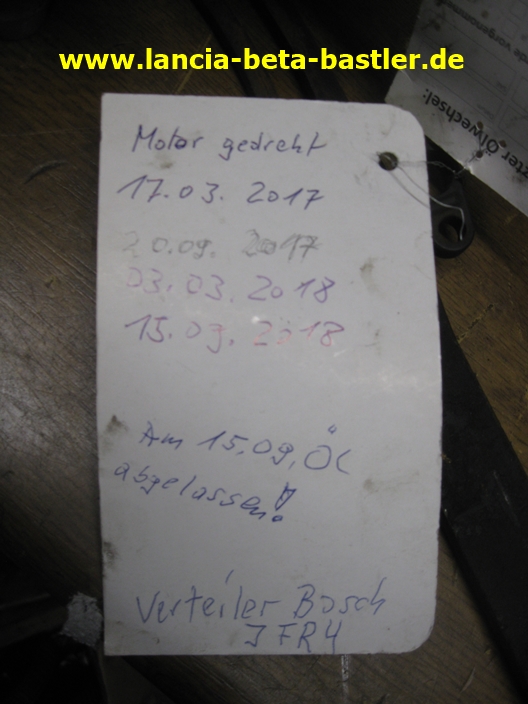 www.lancia-beta-bastler.de
Motor gedreht
17.03.2017
20.09.2017
03.03.2018
15.09.2018
Am 15.09. Öl
abgelassen!
Verteiler Bosch
JFR4
zter Ölwechsel: